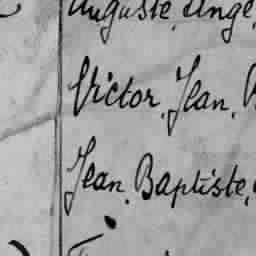 Auguste, Ange,
Victor, Jean,
Jean, Baptiste,